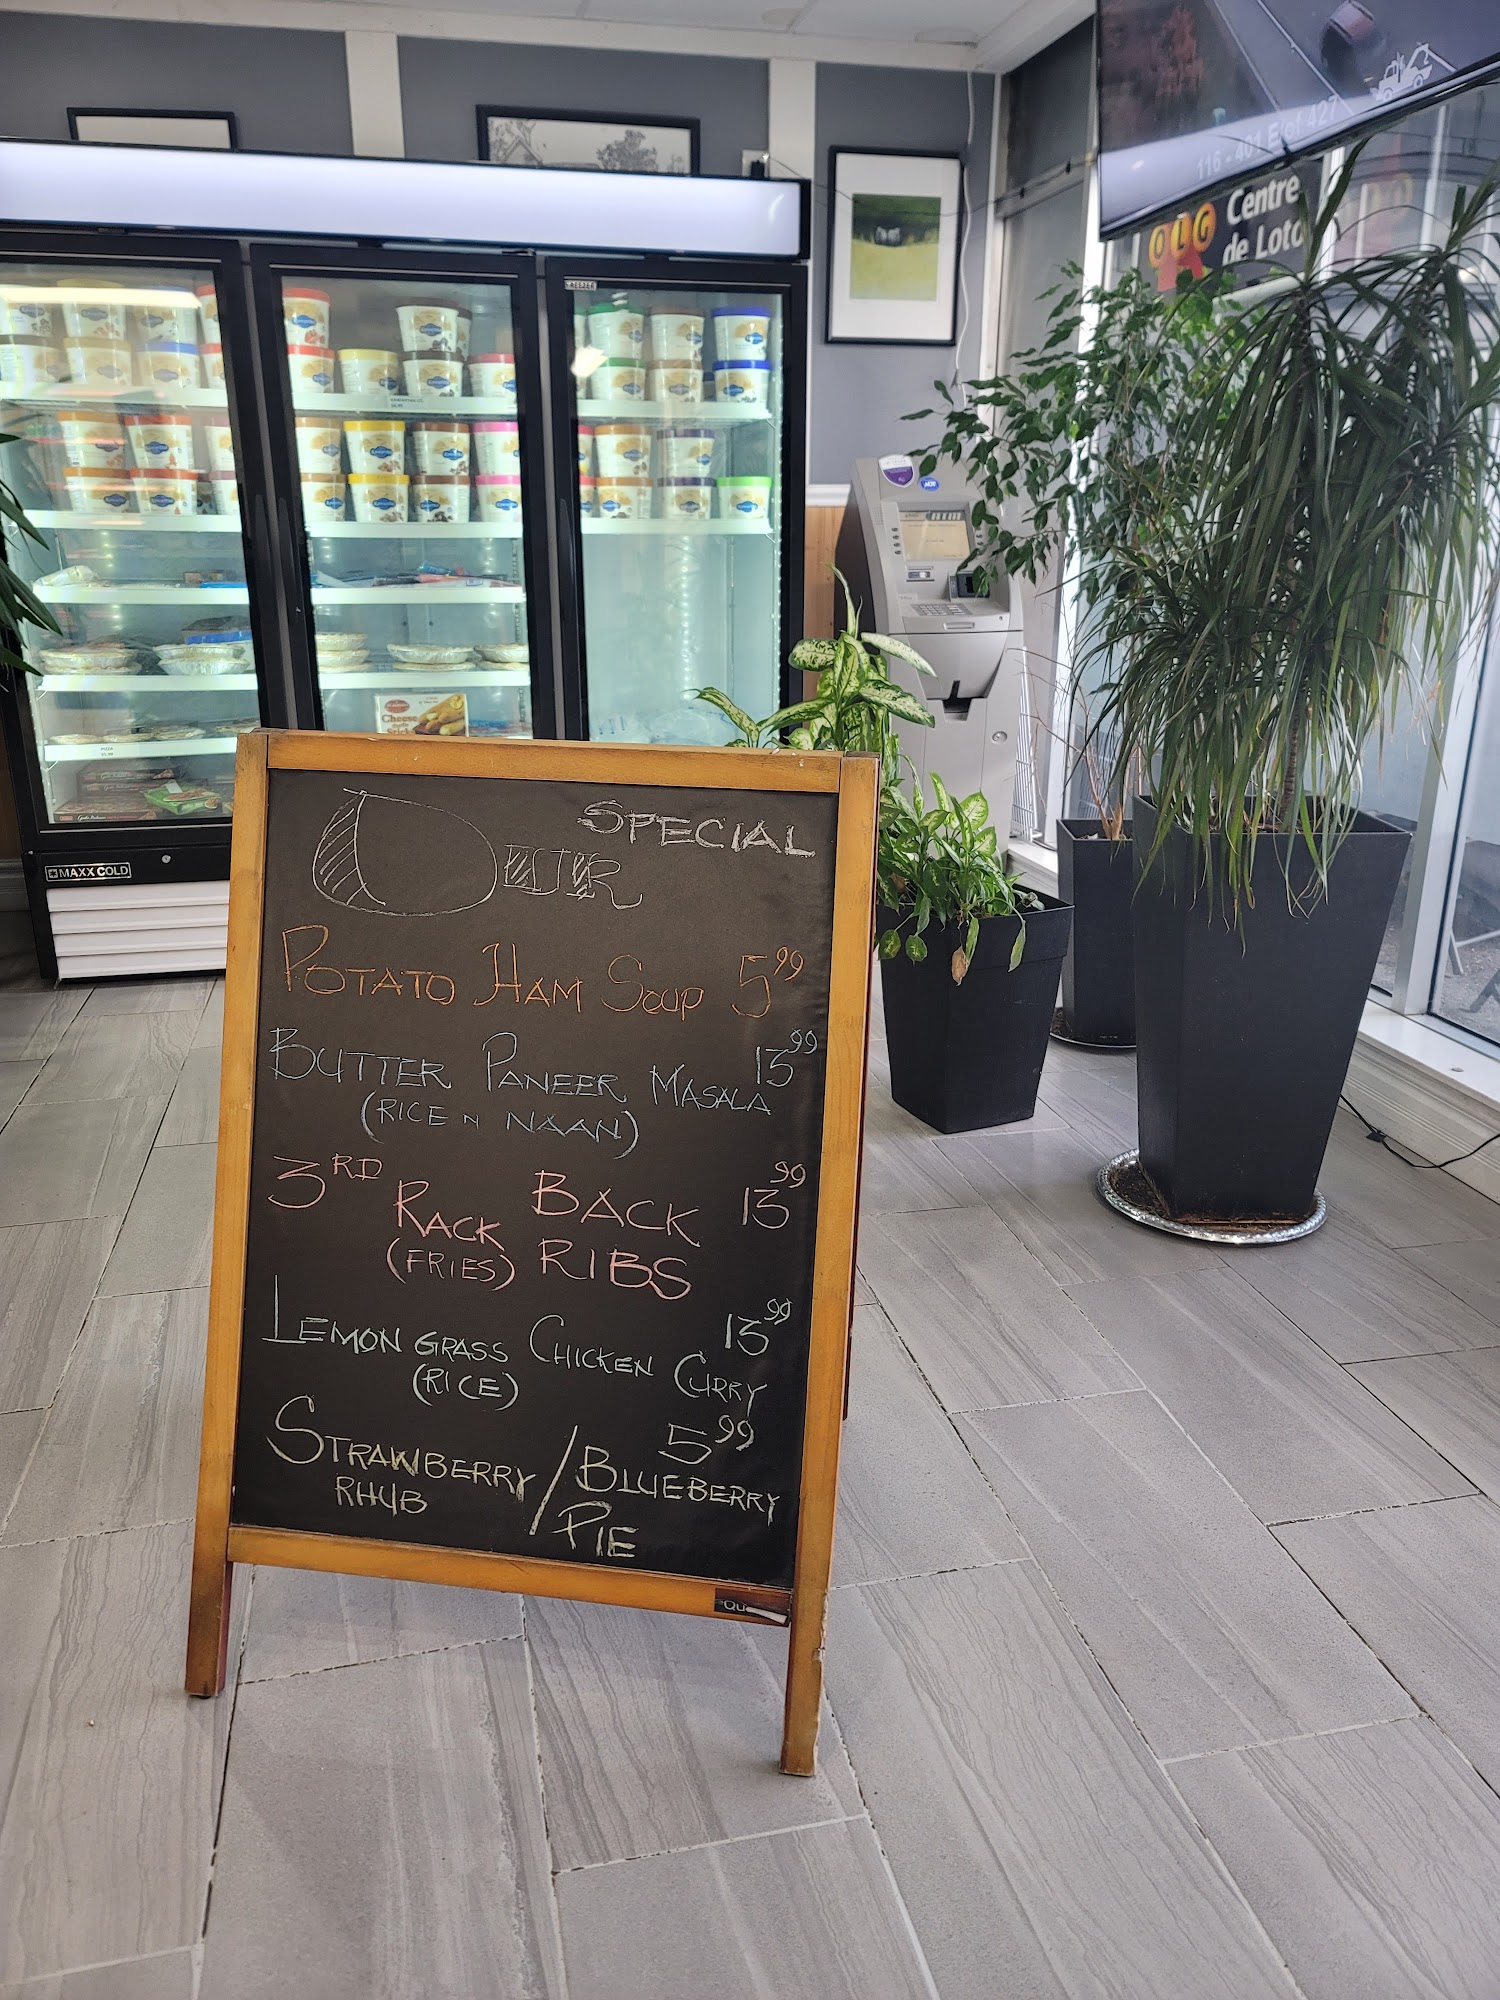 116 - 401 E/of 427
OLG Centre
de Loto
FREEZER
Cheese
PIZZA
MAXX COLD
OUR SPECIAL
POTATO HAM SOUP 5.99
BUTTER PANEER MASALA 13.99
(RICE N NAAN)
3RD RACK BACK 13.99
(FRIES) RIBS
LEMON GRASS CHICKEN CURRY 13.99
(RICE)
STRAWBERRY / BLUEBERRY 5.99
RHUB PIE
Qu